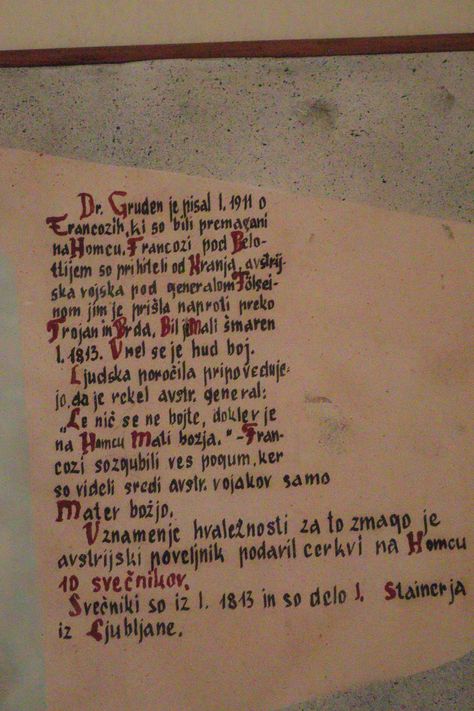 Dr. Gruden je pisal l. 1911 o
Francozih, ki so bili premagani
na Homcu. Francozi pod Belo-
ttijem so prihiteli od Kranja, avstrij-
ska vojska pod generalom Fölsei-
nom jim je prišla naproti preko
Trojan in Brda. Bil je Mali šmaren
l. 1813. Vnel se je hud boj.
Ljudska poročila pripoveduje-
jo, da je rekel avstr. general:
„Le nič se ne bojte, dokler je
na Homcu Mati božja." - Fran-
cozi so zgubili ves pogum, ker
so videli sredi avstr. vojakov samo
Mater božjo.
V znamenje hvaležnosti za to zmago je
avstrijski poveljnik podaril cerkvi na Homcu
10 svečnikov.
Svečniki so iz l. 1813 in so delo I. Stainerja
iz Ljubljane.